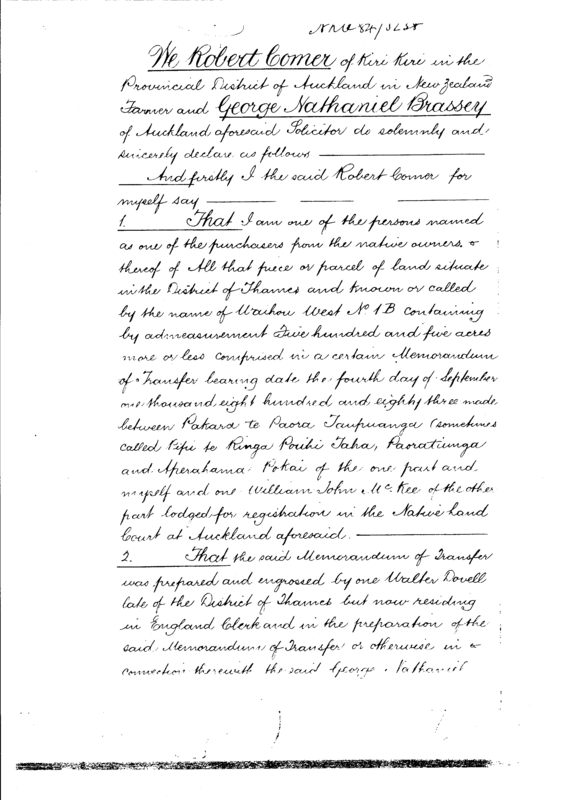 We Robert Comer of Kiri Kiri in the
Provincial District of Auckland in New Zealand
Farmer and George Nathaniel Brassey
of Auckland aforesaid Solicitor do solemnly and
sincerely declare as follows
And firstly I the said Robert Comer for
myself say
1. That I am one of the persons named
as one of the purchasers from the native owners
thereof of All that piece or parcel of land situate
in the District of Thames and known or called
by the name of Waihou West No 1B containing
by admeasurement Five hundred and five acres
more or less comprised in a certain Memorandum
of Transfer bearing date the fourth day of September
one thousand eight hundred and eighty three made
between Pakara te Paora Taupuanga (sometimes
called Pipi te Ringa Pouhi Taha, Paoratiunga
and Aperahama Pokai of the one part and
myself and one William John McKee of the other
part lodged for registration in the Native Land
Court at Auckland aforesaid.
2. That the said Memorandum of Transfer
was prepared and engrossed by one Walter Dovell
late of the District of Thames but now residing
in England Clerk and in the preparation of the
said Memorandum of Transfer or otherwise in
connection therewith the said George Nathaniel